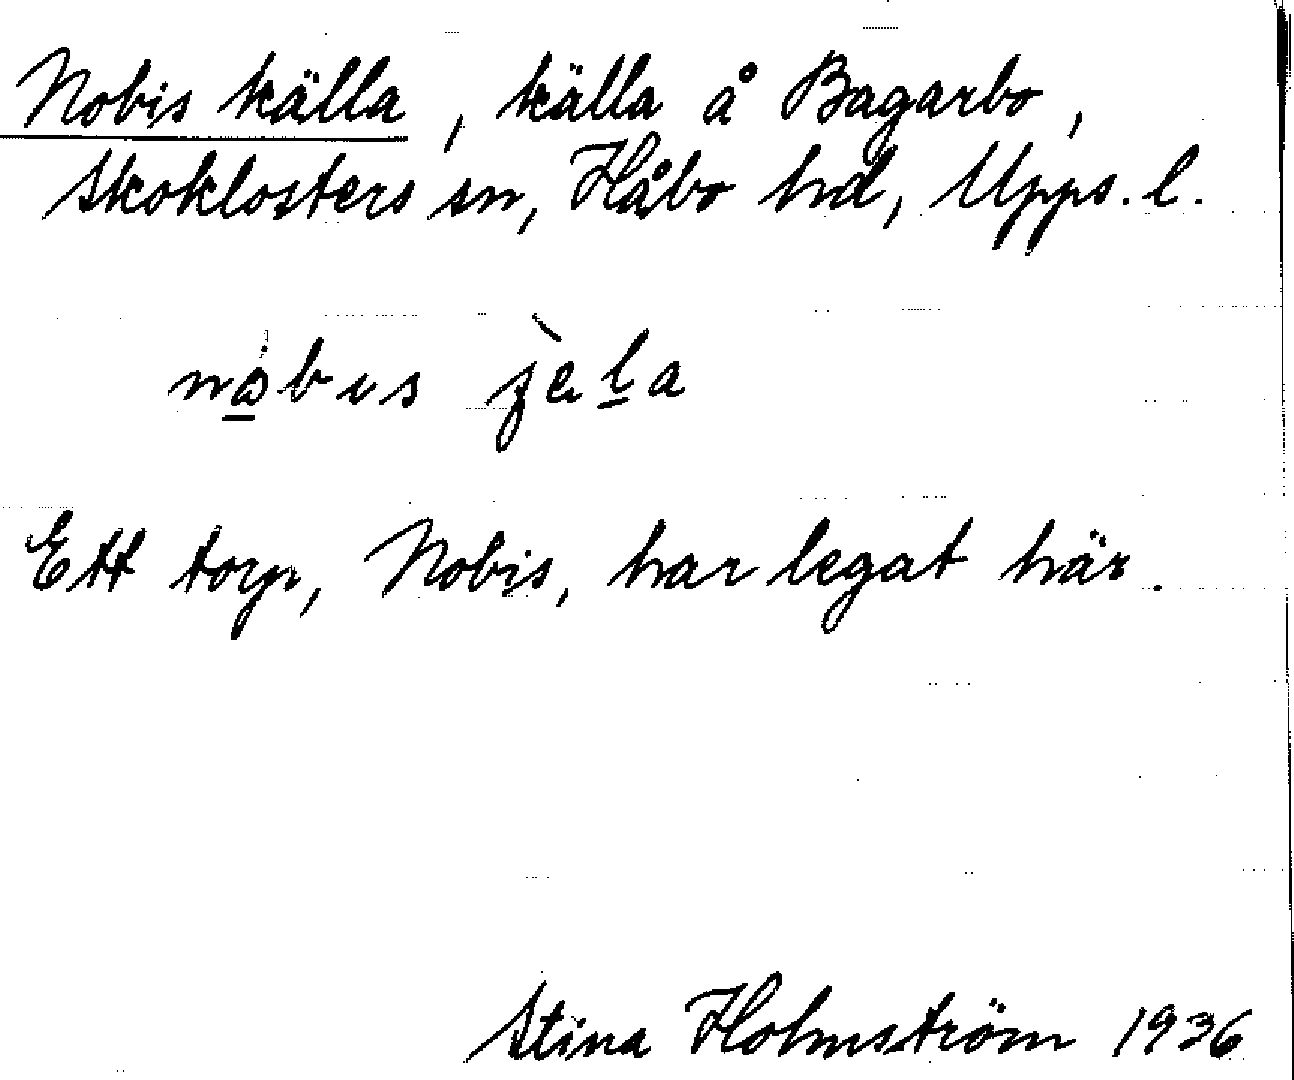 Nobis källa, källa å Bagarbo,
Skoklosters sn, Håbo hd, Upps. l.
Ett torp, Nobis, har legat här.
Stina Holmström 1936